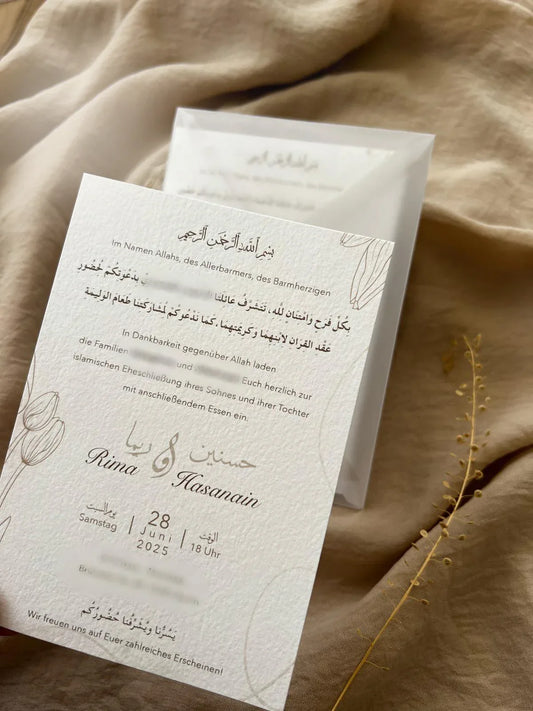 بِسْمِ اللَّهِ الرَّحْمَنِ الرَّحِيمِ
Im Namen Allahs, des Allerbarmers, des Barmherzigen
بِكُلِّ فَرَحٍ وَامْتِنَانٍ لِلَّهِ، تَتَشَرَّفُ عَائِلَتَا بِدَعْوَتِكُمْ لِحُضُورِ
عَقْدِ القِرَانِ لِابْنِهِمَا وَكَرِيمَتِهِمَا، كَمَا نَدْعُوكُمْ لِمُشَارَكَتِنَا طَعَامَ الوَلِيمَةِ
In Dankbarkeit gegenüber Allah laden
die Familien und Euch herzlich zur
islamischen Eheschließung ihres Sohnes und ihrer Tochter
mit anschließendem Essen ein.
حسنين و ريما
Rima Hasanain
يوم السبت 28 الوقت
Samstag Juni 18 Uhr
2025
يَسُرُّنَا وَيُشَرِّفُنَا حُضُورُكُم
Wir freuen uns auf Euer zahlreiches Erscheinen!